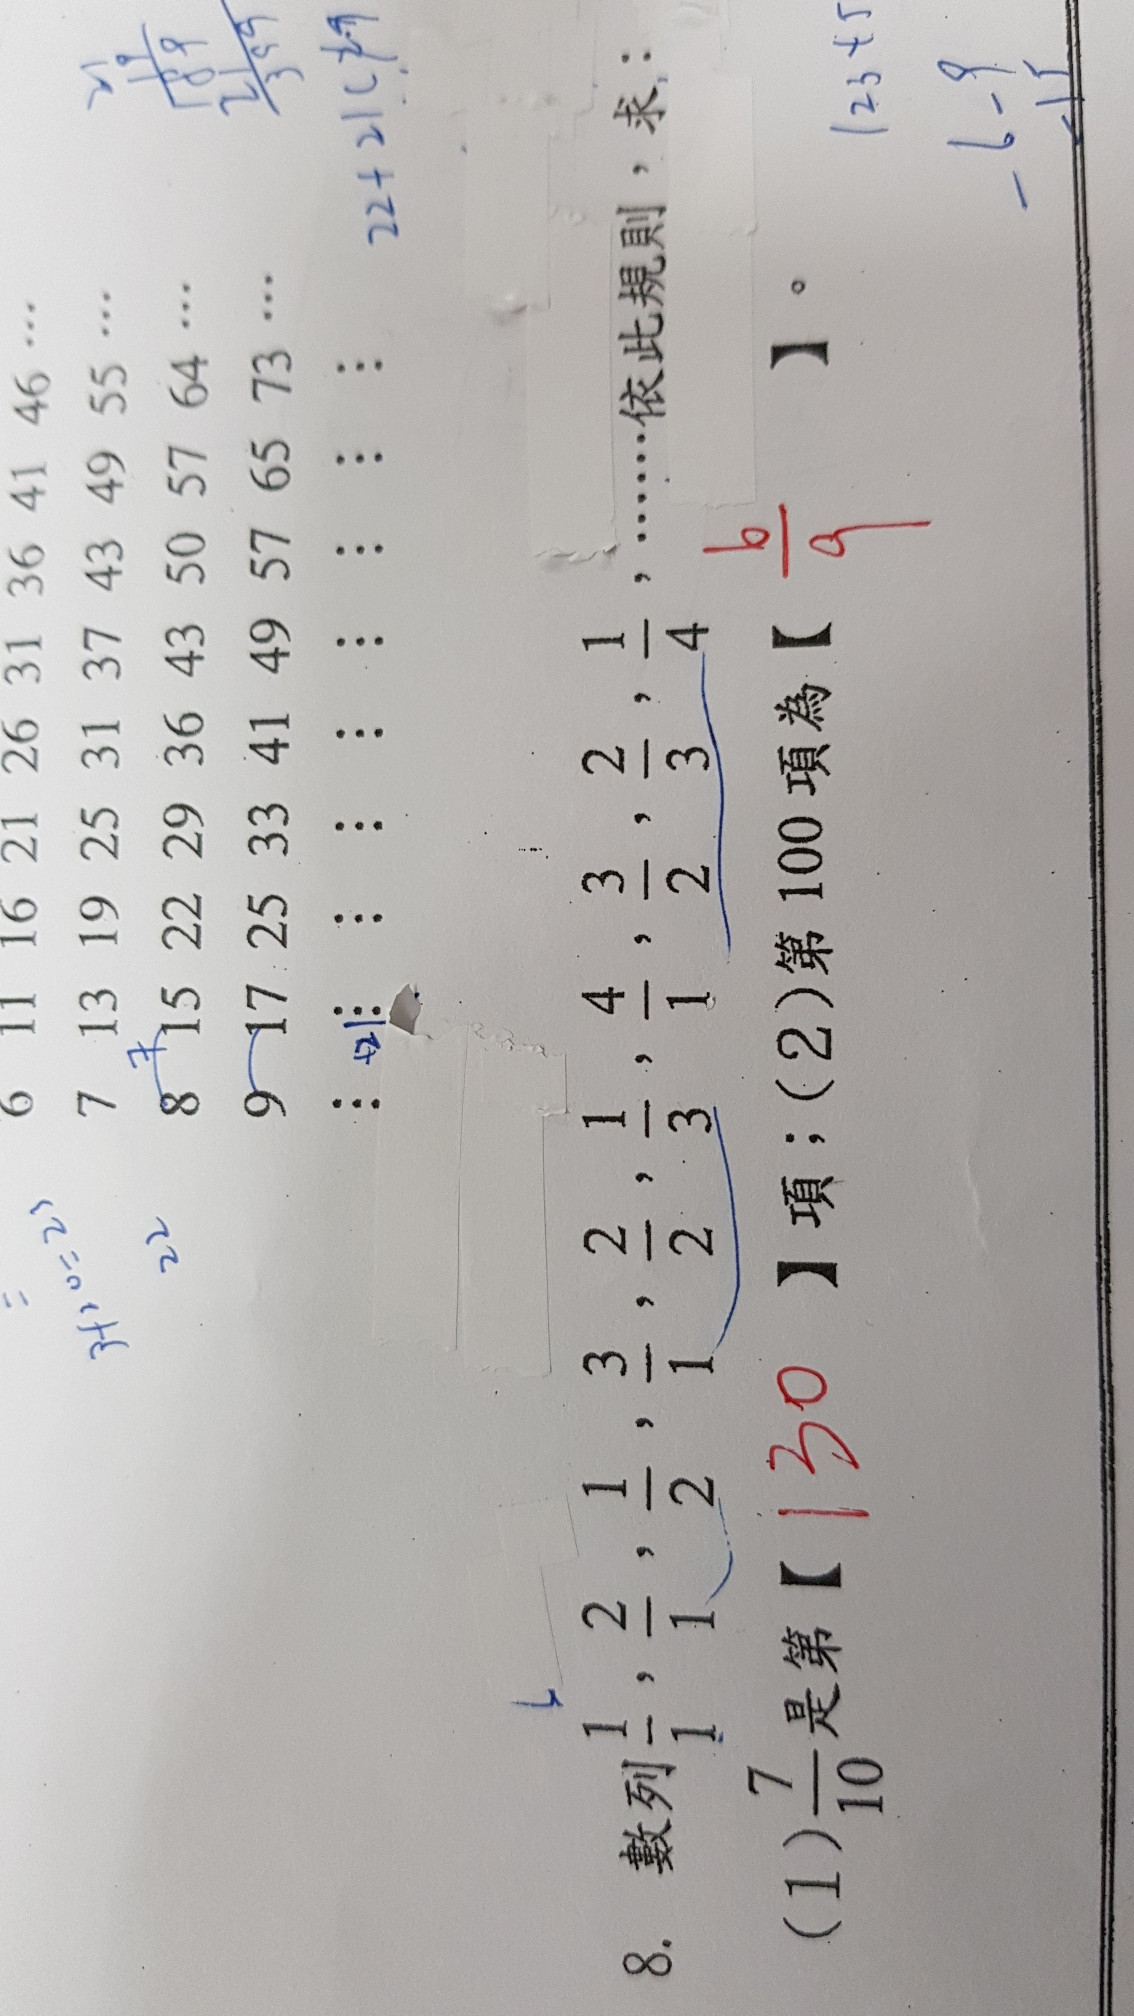 6 11 16 21 26 31 36 41 46 …
7 13 19 25 31 37 43 49 55 …
8 15 22 29 36 43 50 57 64 …
9 17 25 33 41 49 57 65 73 …
⋮ ⋮ ⋮ ⋮ ⋮ ⋮ ⋮ ⋮ ⋮
7
+2
22
22+21(
8. 數列 1/1, 2/1, 1/2, 3/1, 2/2, 1/3, 4/1, 3/2, 2/3, 1/4, ……依此規則,求:
(1) 7/10 是第【 130 】項;(2)第 100 項為【 6/9 】。
123+5